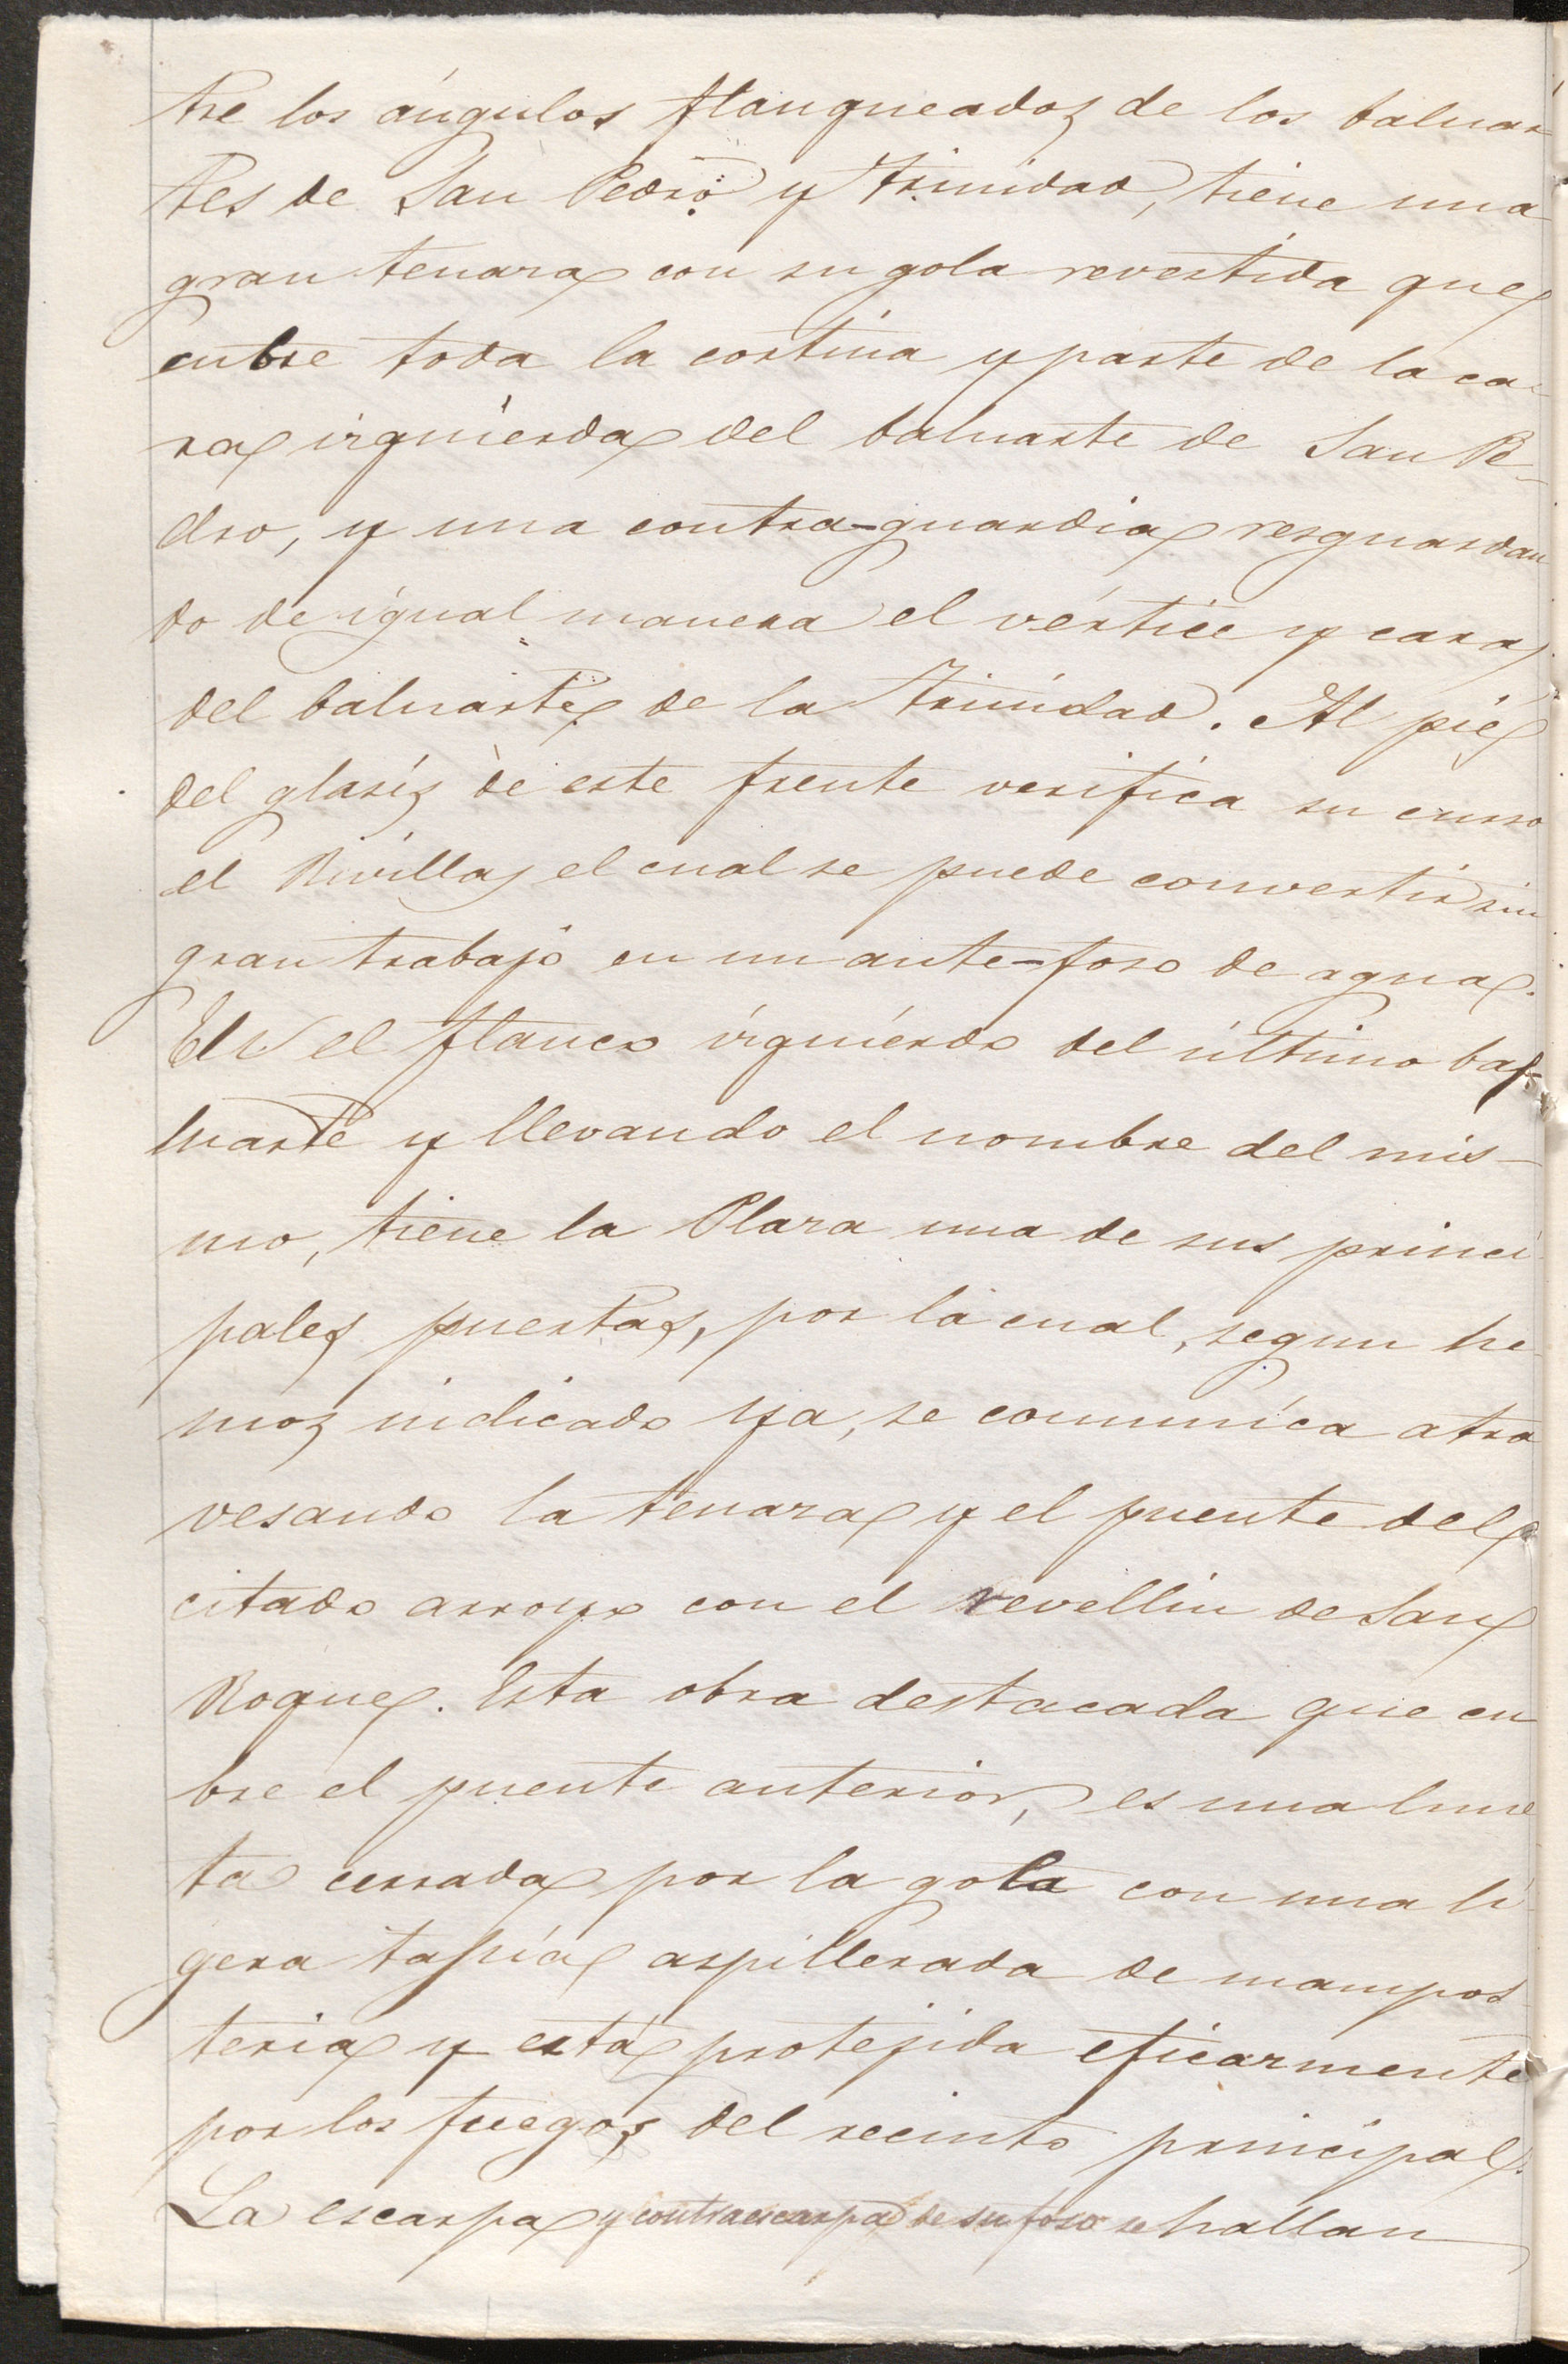 tre los ángulos flanqueados de los baluar
tes de San Pedro y Trinidad, tiene una
gran tenaza con su gola revestida que
cubre toda la cortina y parte de la ca-
ra izquierda del baluarte de San Pe-
dro, y una contra-guardia resguardan
do de igual manera el vértice y cara
del baluarte de la Trinidad. Al pié
del glasís de este frente verifica su curso
el Rivillas el cual se puede convertir sin
gran trabajo en un ante-foso de agua.
En el flanco izquierdo del último ba-
luarte y llevando el nombre del mis-
mo, tiene la Plaza una de sus princi
pales puertas, por la cual, segun he-
mos indicado ya, se comunica atra
vesando la tenaza y el puente del
citado arroyo con el revellin de San
Roque. Esta obra destacada que cu
bre el puente anterior, es una lune
ta cerrada por la gola con una li
gera tapia aspillerada de mampos-
teria y está protejida eficazmente
por los fuegos del recinto principal.
La escarpa y contraescarpa de su foso se hallan